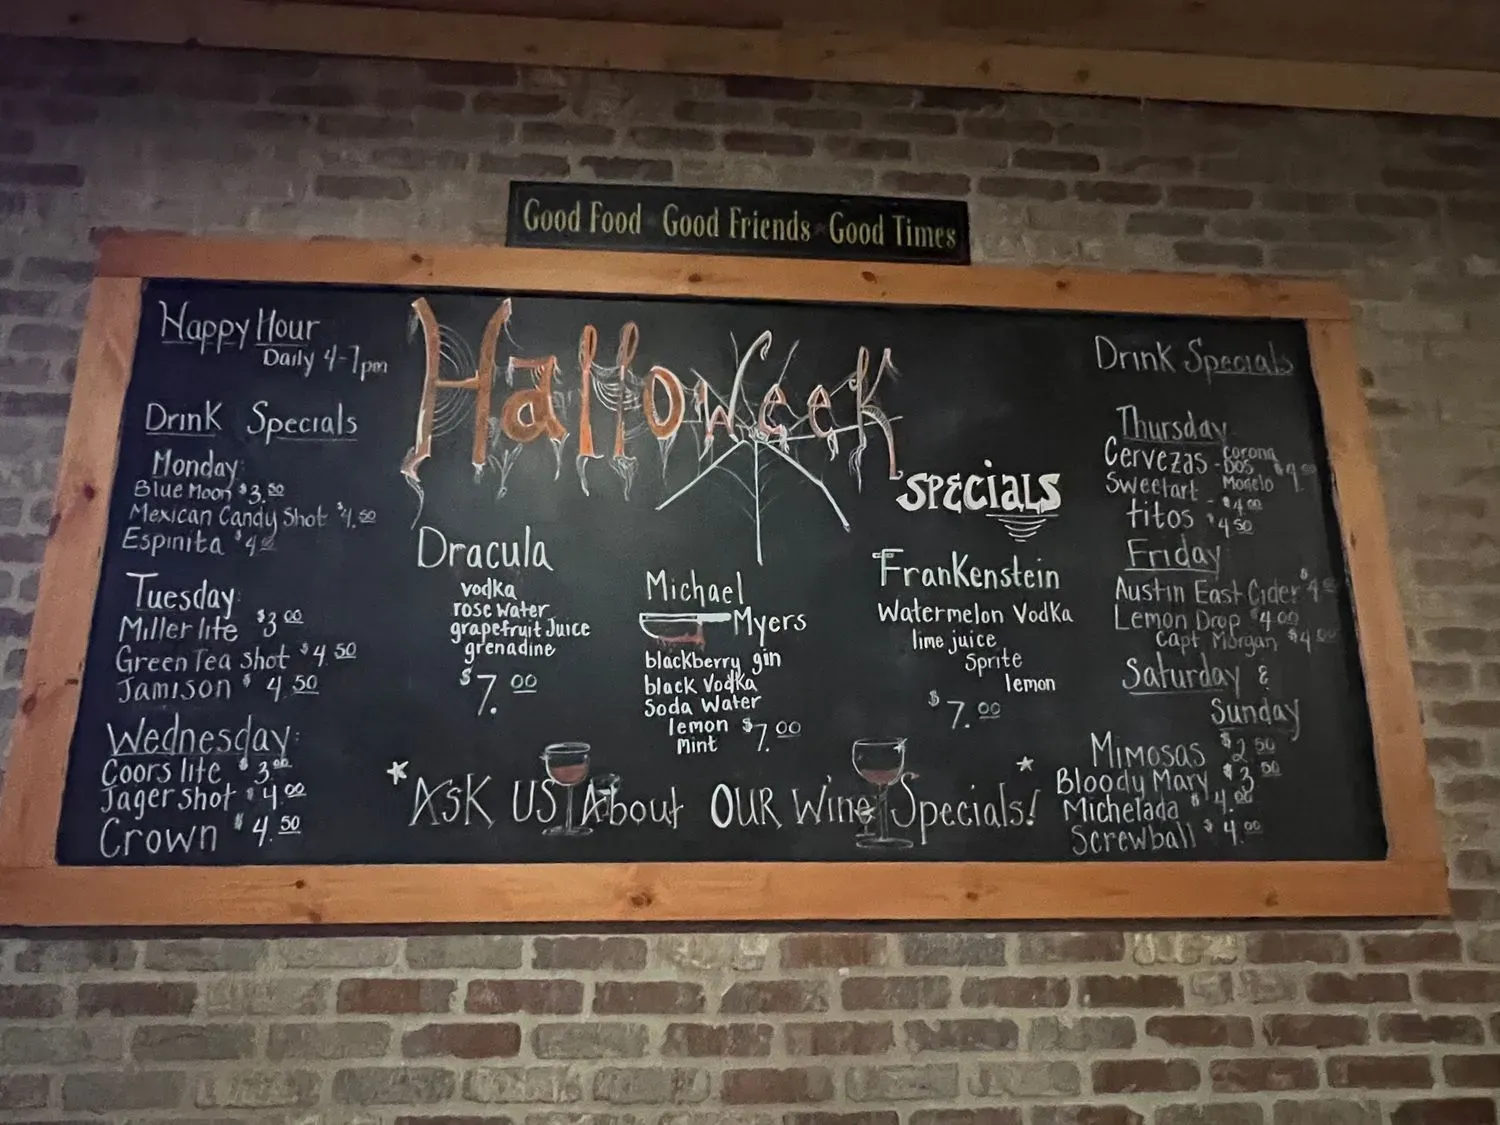 Good Food Good Friends Good Times
Happy Hour
Daily 4-7pm
Drink Specials
Monday
Blue Moon $3.50
Mexican Candy Shot $4.50
Espinita $4
Tuesday
Miller lite $3.00
Green Tea Shot $4.50
Jamison $4.50
Wednesday:
Coors lite $3.00
Jager shot $4.00
Crown $4.50
HalloWeek
SPECIALS
Dracula
vodka
rose water
grapefruit Juice
grenadine
$7.00
Michael
Myers
blackberry gin
black Vodka
Soda Water
lemon $7.00
mint
FranKenstein
Watermelon Vodka
lime juice
Sprite
lemon
$7.00
*ASK US About OUR Wine Specials!*
Drink Specials
Thursday
Cervezas - Corona
Dos
Modelo
Sweetart - $4.00
titos $4.50
Friday
Austin East Cider $4
Lemon Drop $4.00
Capt Morgan $4.00
Saturday &
Sunday
Mimosas $2.50
Bloody Mary $3.50
Michelada $4.00
Screwball $4.00